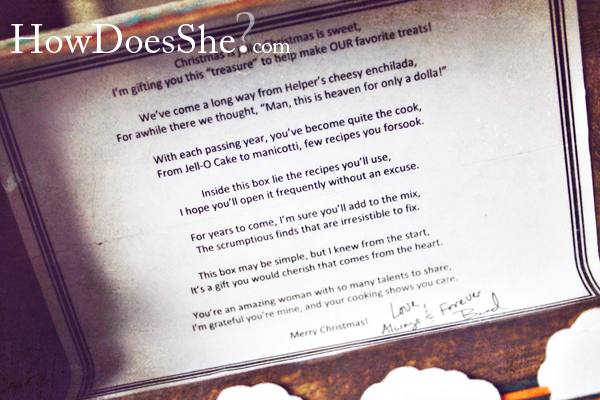 HowDoesShe?.com
Christmas is Christmas is sweet,
I'm gifting you this "treasure" to help make OUR favorite treats!
We've come a long way from Helper's cheesy enchilada,
For awhile there we thought, "Man, this is heaven for only a dolla!"
With each passing year, you've become quite the cook,
From Jell-O Cake to manicotti, few recipes you forsook.
Inside this box lie the recipes you'll use,
I hope you'll open it frequently without an excuse.
For years to come, I'm sure you'll add to the mix,
The scrumptious finds that are irresistible to fix.
This box may be simple, but I knew from the start,
It's a gift you would cherish that comes from the heart.
You're an amazing woman with so many talents to share,
I'm grateful you're mine, and your cooking shows you care.
Merry Christmas!
Love,
Always & Forever